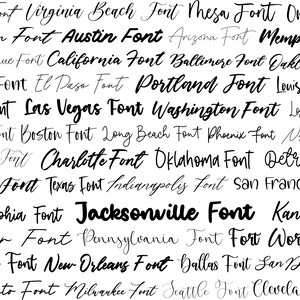 Font Virginia Beach Font Mesa Font
Font Austin Font Arizona Font Memp
ue Font California Font Baltimore Font Oak
Font El Paso Font Portland Font Louis
nt Las Vegas Font Washington Font Lou
nt Boston Font Long Beach Font Phoenix Font
Font Charlotte Font Oklahoma Font Detr
Font Texas Font Indianapolis Font San Franc
phia Font Jacksonville Font Kan
Font Pennsylvania Font Fort Wor
Font New Orleans Font Dallas Font San D
to Font Milwaukee Font Seattle Font Clevela